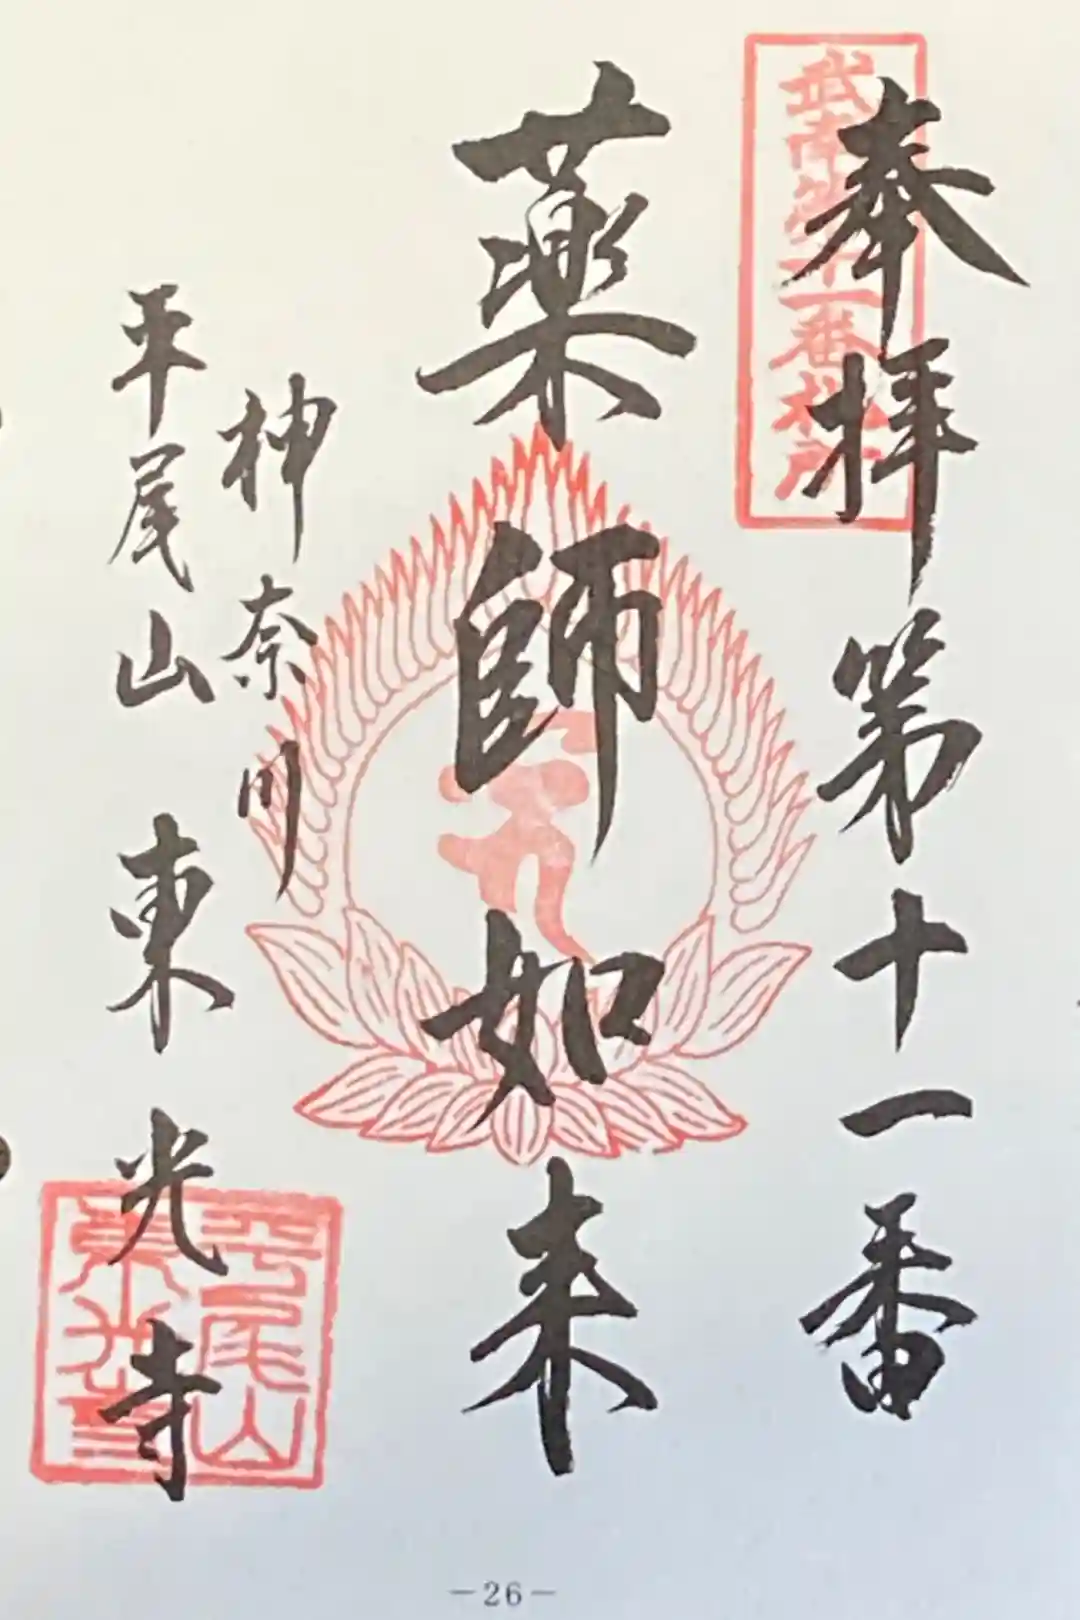 奉拝第十一番
武南第十一番札所
薬師如来
神奈川
平尾山東光寺
平尾山
東光寺
-26-